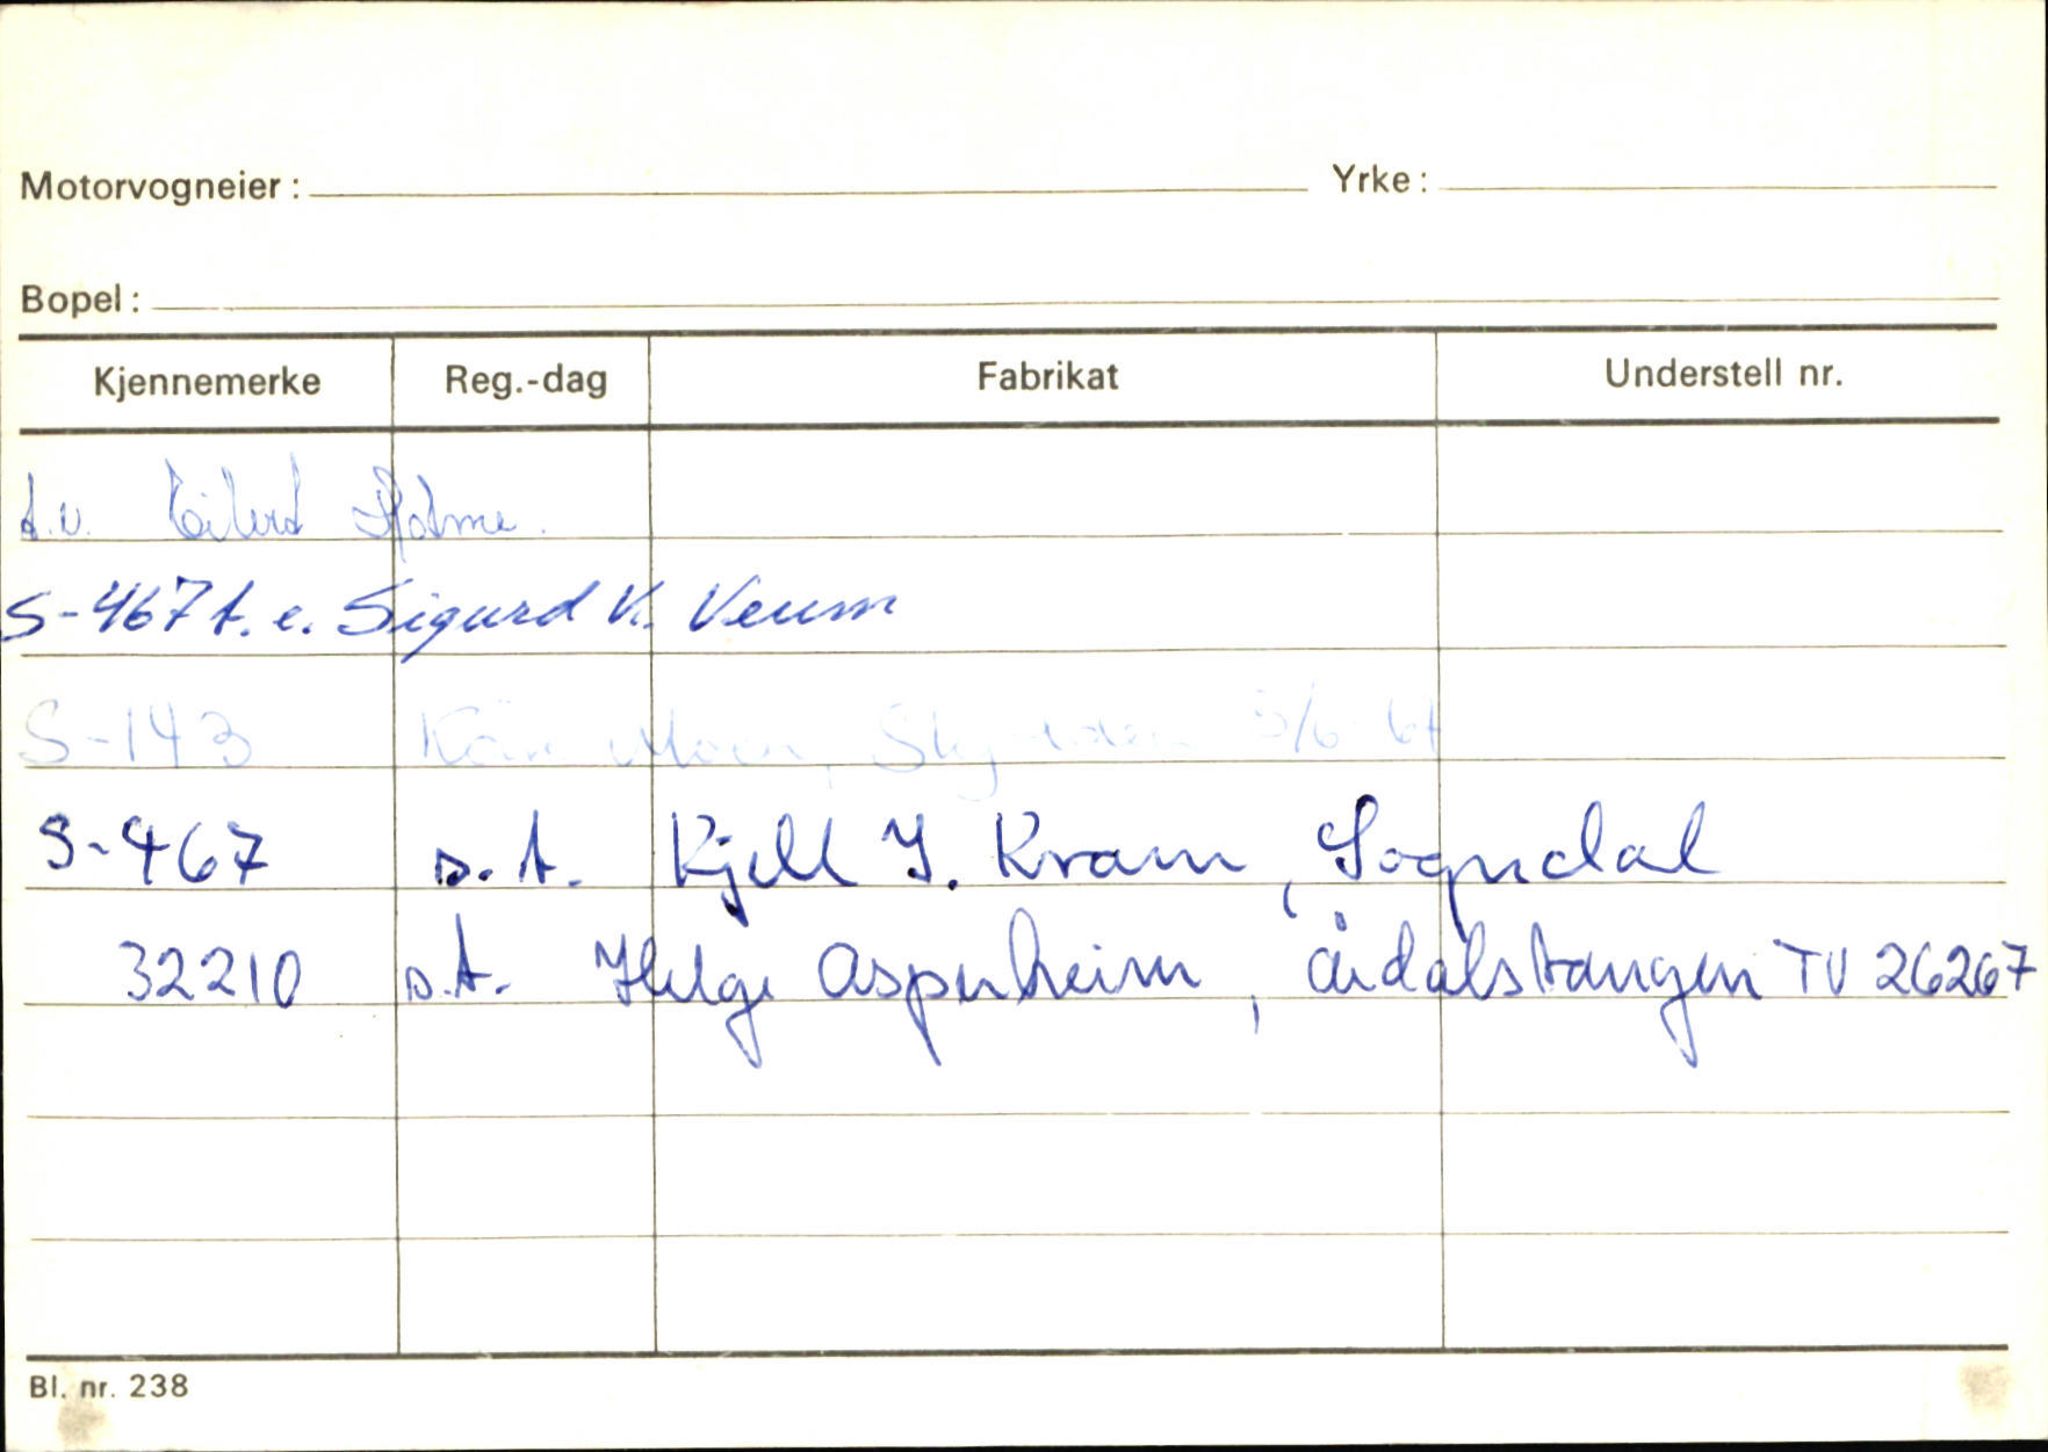 Motorvogneier: Yrke:
Bopel:
Kjennemerke Reg.-dag Fabrikat Understell nr.
t.v. Eilert Holme.
S-467 t.e. Sigurd K. Veum
S-143 Skjolden 5/6 67
S-467 s.t. Kjell I. Kram, Sogndal
32210 s.t. Helge Aspenheim, Årdalstangen TV 26267
Bl. nr. 238